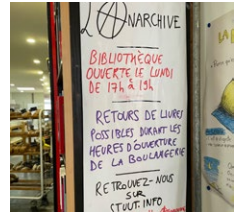 L'ANARCHIVE
BIBLIOTHÈQUE
OUVERTE LE LUNDI
DE 17h à 19h
RETOURS DE LIVRES
POSSIBLES DURANT LES
HEURES D'OUVERTURE
DE LA BOULANGERIE
RETROUVEZ-NOUS
SUR
STUUT.INFO